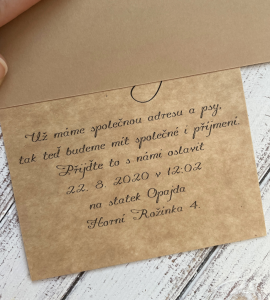 Už máme společnou adresu a psy,
tak teď budeme mít společné i příjmení.
Přijďte to s námi oslavit
22. 8. 2020 v 12:02
na statek Opajda
Horní Rožínka 4.